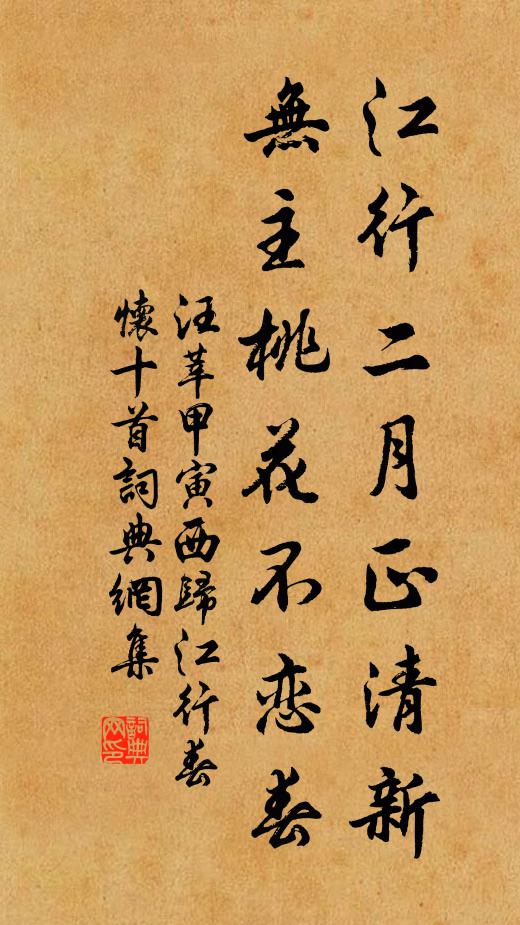 江行二月正清新
無主桃花不恋春
汪莘甲寅西歸江行春
懷十首詞典網集
詞典网印